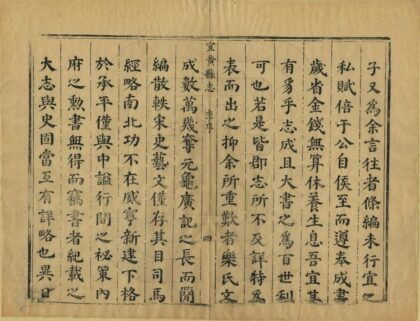 子又為余言往者條編未行宜之
私賦倍于公自侯至而遵奉成書
歲省金錢無算休養生息吾宜其
有豸乎志成且大書之為百世利
可也若是皆郡志所不及詳特為
表而出之抑余所重歎者樂氏文
宜黃縣志 李序 四
成數萬幾奪元龜廣記之長而闕
編散軼宋史藝文僅存其目司馬
經略南北功不在威寧新建下格
於承平僅與中謚行間之秘策內
府之勳書無得而竊書者紀載之
大志與史固當互有詳略也異日